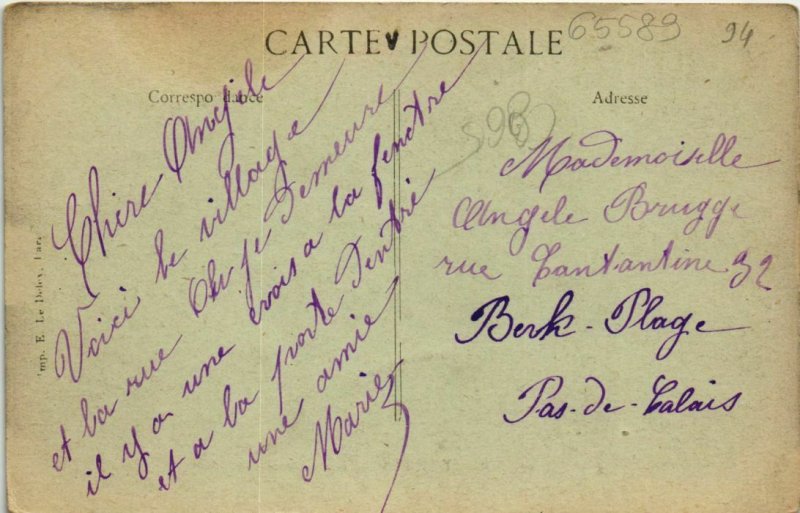 65589
94
CARTE POSTALE
Correspondance
Adresse
Chère Angèle
Voici le village
et la rue ou je demeure
il y a une crois a la fenêtre
et a la porte d'entré
une amie
Marie
Mademoiselle
Angele Brugge
rue 32
Berk-Plage
Pas-de-Calais
Imp. E. Le Deley, Paris